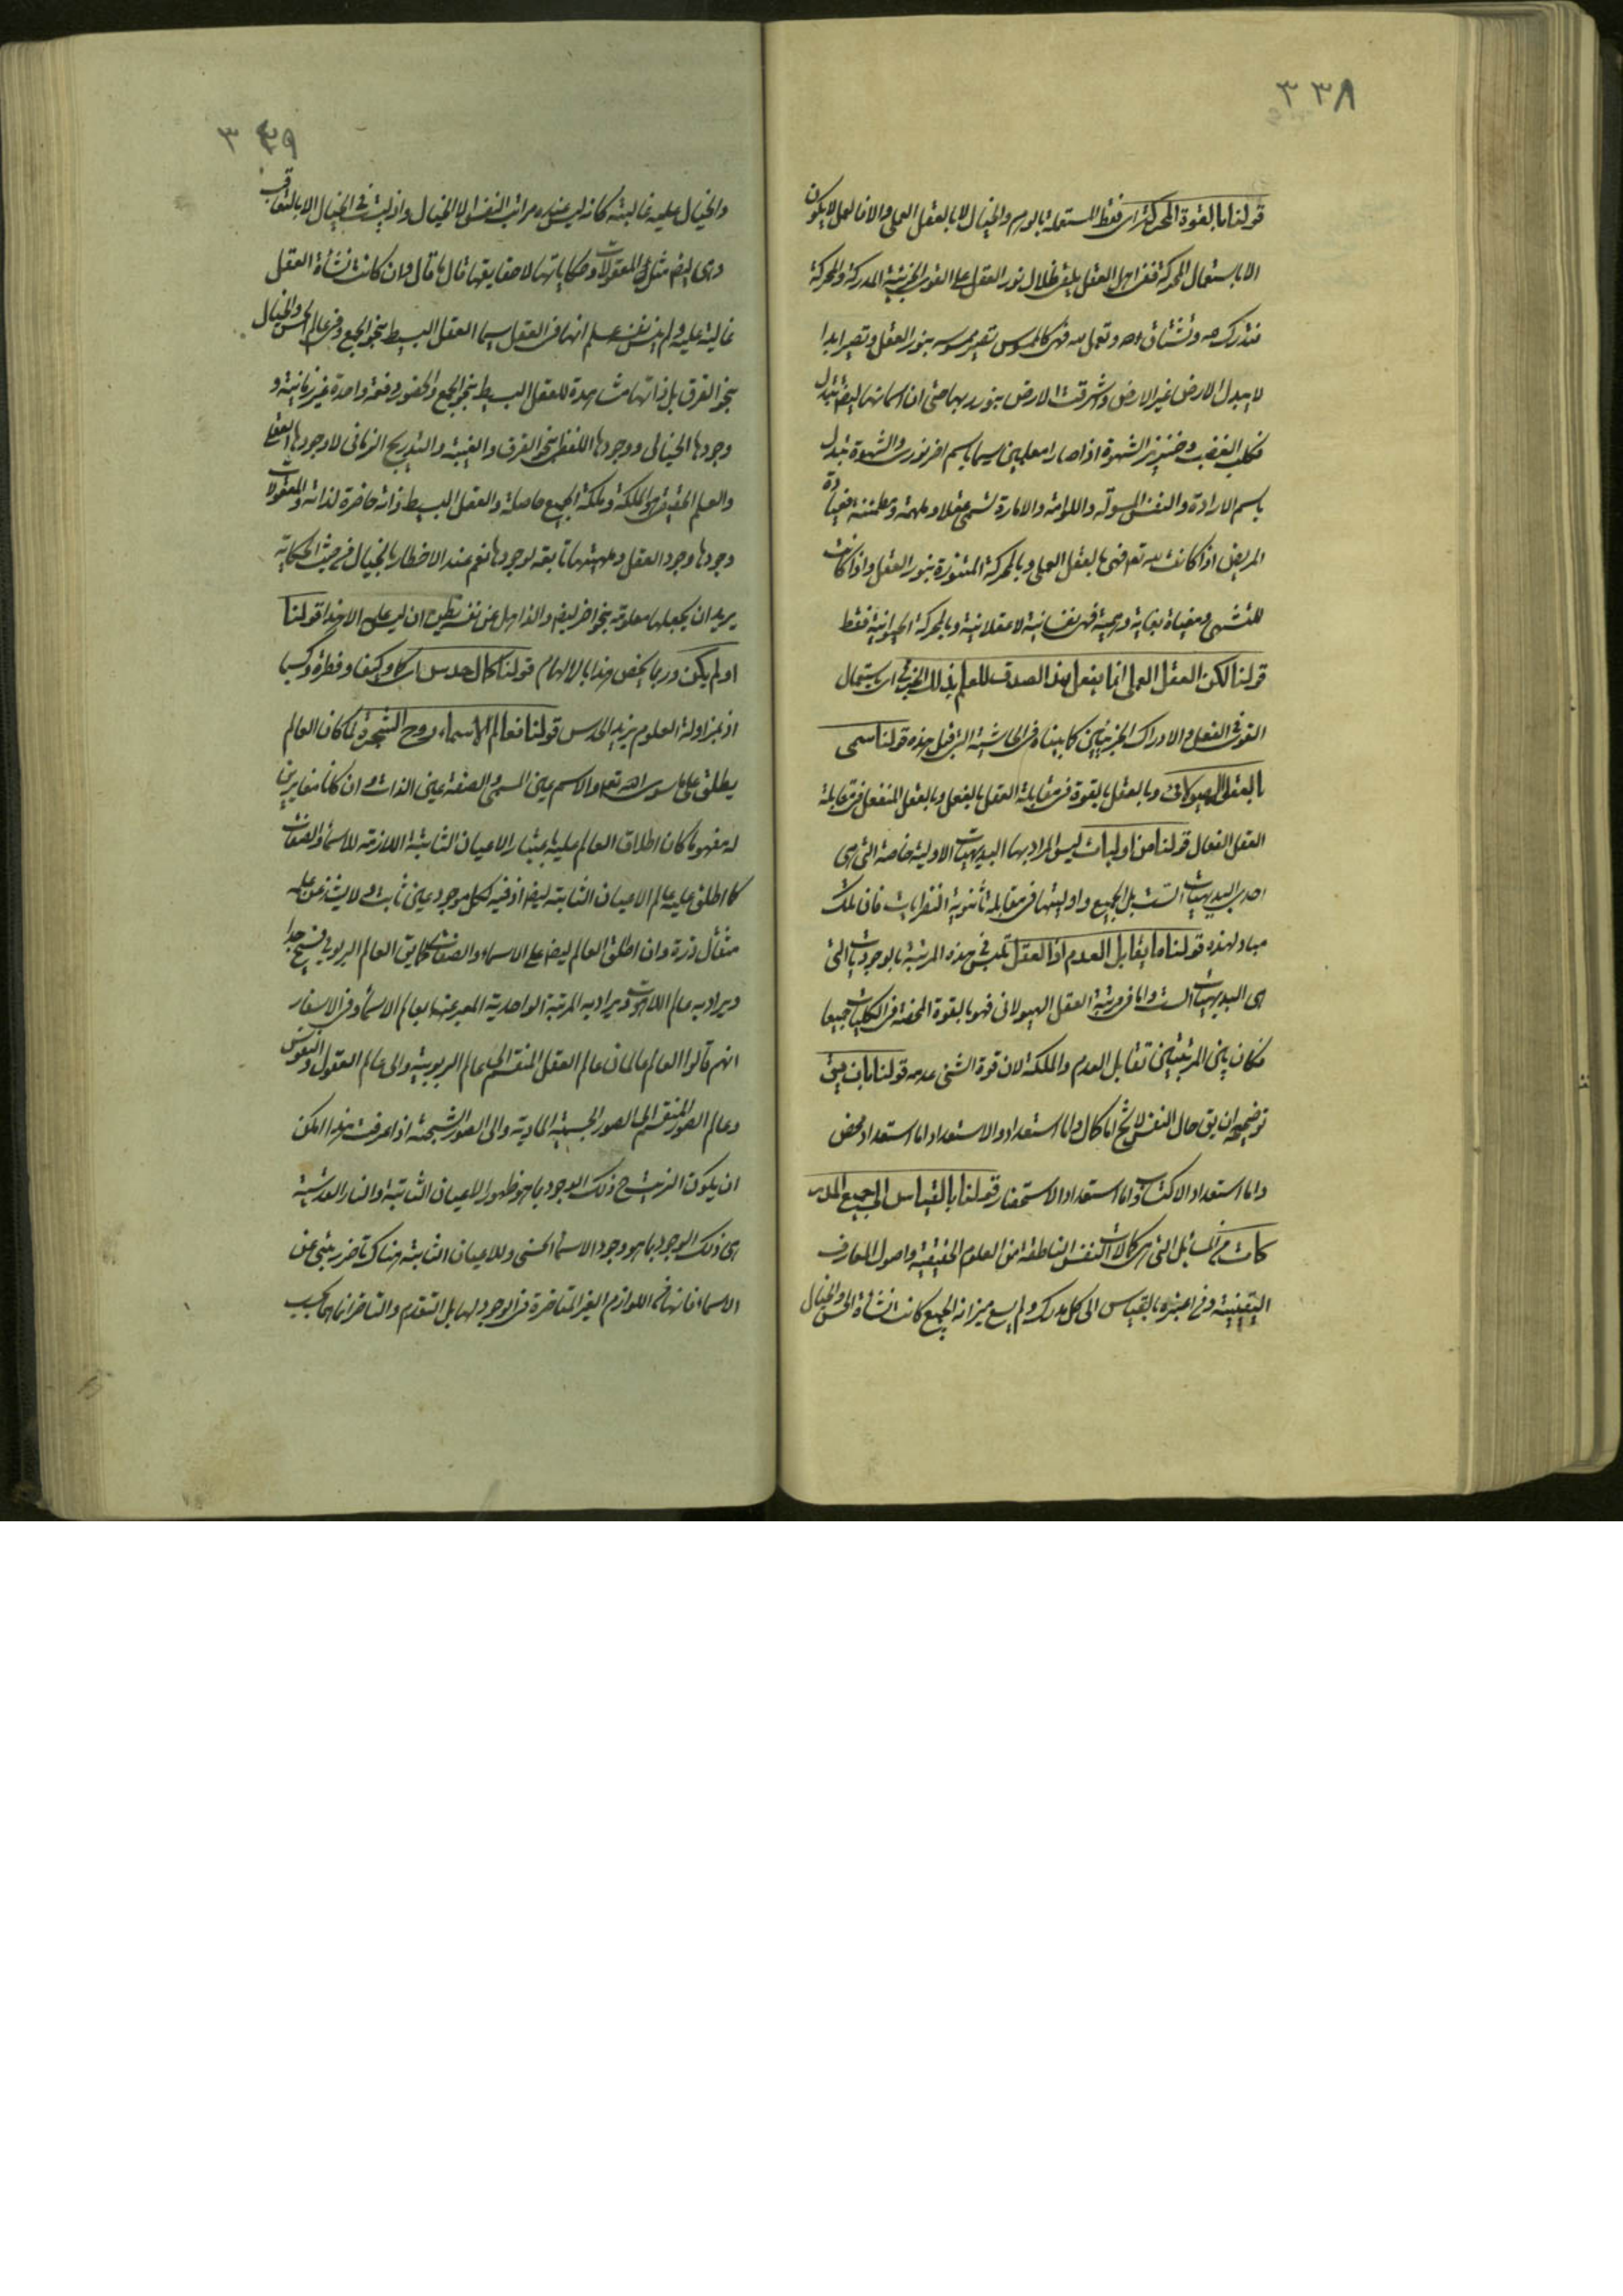 ٣٣٨
قولنا بالقوة المحركة اى فقط المستعملة بالوهم والخيال لا بالعقل العملى والافاعل لا يكون
الا باستعمال المحركة ففى اهل العقل يلقى ظلال نور العقل على القوى الجزئية المدركة والمحركة
فتدرك لله وتشتاق لله وتعمل لله فهى كالمجوس تصير بنور العقل وتصير ابدا
لا يبدل الارض غير الارض واشرقت الارض بنور ربها حتى ان اسمائها ايضا تتبدل
فكلب الغضب وخنزير الشهوة اذا صارا معلمين سيما باسم اخر نورى والشهوة تبدل
باسم الارادة والنفس المسولة واللوامة والامارة تسمى عقلا وملهمة ومطمئنة فعيادة
المريض اذا كانت لله تعم فهى بالعقل العملى وبالمحركة المتنورة بنور العقل واذا كانت
للتشهى ومغياة بغاية وهمية فهى نفسانية لا عقلانية وبالمحركة الحيوانية فقط
قولنا لكن العقل العملى انما يفعل هذا الصدق للعلم بذلك الجزئى اى باستعمال
القوى فى الفعل والادراك الجزئيين كما بيناه فى الحاشية التى قبل هذه قولنا سمى
بالعقل الهيولانى وبالعقل بالقوة فى مقابلة العقل بالفعل وبالعقل المنفعل فى مقابلة
العقل الفعال قولنا من اوليات ليس المراد بها البديهيات الاولية خاصة التى هى
احدى البديهيات الست بل الجميع واوليتها فى مقابلة ثانوية النظريات فان تلك
مباد لهذه قولنا ما يقابل العدم اذ العقل تلبس فى هذه المرتبة بالوجوديات التى
هى البديهيات الست واما فى مرتبة العقل الهيولانى فهو بالقوة المحضة فى الكليات جميعا
فكان بين المرتبتين تقابل العدم والملكة لان قوة الشئ عدمه قولنا بان يبق
توضيحه ان يق حال النفس لا يخ اما كمال واما استعداد والاستعداد اما استعداد محض
واما استعداد الاكتساب واما استعداد الاستحضار قولنا بالقياس الى جميع المدر
كات من المسائل التى هى كمالات النفس الناطقة من العلوم الحقيقية واصول المعارف
اليقينية وفى اعتبره بالقياس الى كل مدرك ولم يسع ميزانه الجميع كانت نشأة الحس والخيال
٣٣٩
والخيال عليه غالبة كانه ليس عنده مراتب النفس الا الخيال واذ ليست فى الخيال الا بالتعاقب
وهى ايضا مثل المعقولات وحكاياتها لا حقايقها قال ما قال وان كانت نشأة العقل
غالبة عليه ولم ينس نفسه علم انها فى العقل سيما العقل البسيط بنحو الجمع وفى عالم الحس والخيال
بنحو الفرق بل ذاتها مشاهدة للعقل البسيط بنحو الجمع والحضور دفعة واحدة غير زمانية و
وجودها الخيالى ووجودها اللفظى بنحو الفرق والغيبة والتدريج الزمانى لا وجودها العقلى
والعلم الحقيقى هو الملكة وملكة الجميع حاصلة والعقل البسيط ذاته حاضرة لذاته والمعقولات
وجودها وجود العقل ومهيتها تابعة لوجودها نعم عند الاخطار بالخيال فى حيث الحكاية
يريد ان يجعلها معلومة بنحو اخر ايضا والذاهل عن نفسه يظن ان ليس على الا هذا قولنا
او لم يكن وربما يخص هذا بالالهام قولنا كمال حدس اى كما وكيفا وفطرة وكسبا
اذ بمزاولة العلوم يزيد الحدس قولنا فعالم الاسماء روح الشجرة لما كان العالم
يطلق على ما سوى الله تعم والاسم عين المسمى والصفة عين الذات وان كانا مغايرين
له مفهوما كان اطلاق العالم عليه باعتبار الاعيان الثابتة اللازمة للاسماء والصفات
كما اطلق عليه عالم الاعيان الثابتة ايضا اذ فيه لكل موجود عين ثابت ولا يشذ عن علمه
مثقال ذرة وان اطلق العالم ايضا على الاسماء والصفات كما يق العالم الربوبى فسيح جدا
ويراد به عالم اللاهوت ويراد به المرتبة الواحدية المعبر عنها بعالم الاسماء وفى الاسفار
انهم قالوا العالم عالمان عالم العقل المنقسم الى عالم الربوبية والى عالم العقول والنفوس
وعالم الصور المنقسم الى الصور الجسمية المادية والى الصور الشبحية اذا عرفت هذا امكن
ان يكون الزيت ح ذلك الوجود بما هو ظهور الاعيان الثابتة والنار القدسية
هى ذلك الوجود بما هو وجود الاسماء الحسنى وللاعيان الثابتة هناك تأخر رتبى عن
الاسماء فانها فى اللوازم الغير المتاخرة فى الوجود لها بل التقدم والتاخر انما هما بحسب